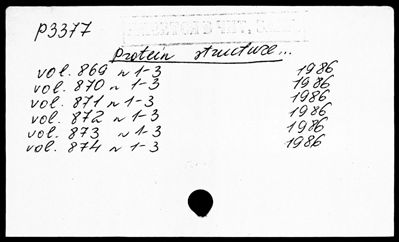 P3377
Protein structure...
vol. 869 n 1-3 1986
vol. 870 n 1-3 1986
vol. 871 n 1-3 1986
vol. 872 n 1-3 1986
vol. 873 n 1-3 1986
vol. 874 n 1-3 1986